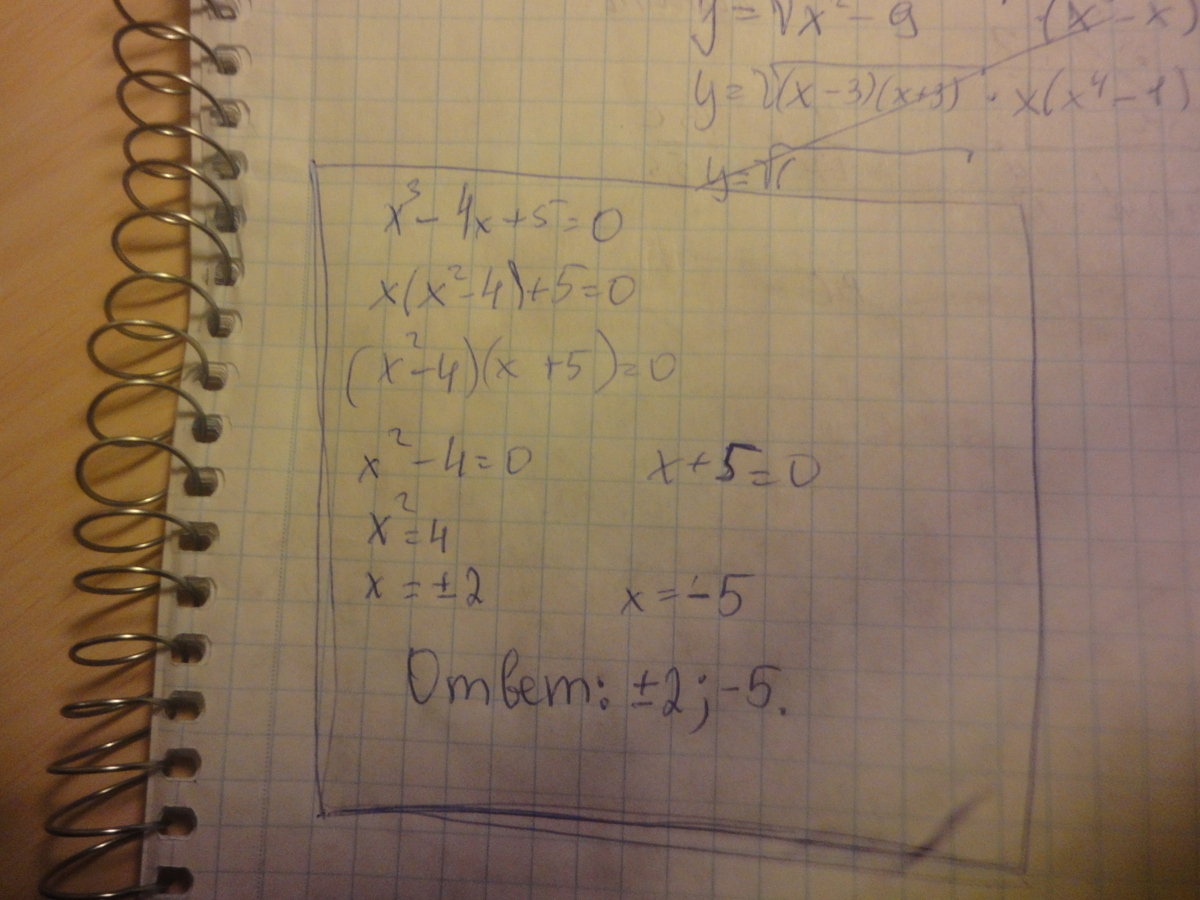 y = √x² - 9 · (x - x)
y = √(x-3)(x+3) · x(x⁴-1)
y = √(
x³ - 4x + 5 = 0
x(x² - 4) + 5 = 0
(x² - 4)(x + 5) = 0
x² - 4 = 0 x + 5 = 0
x² = 4
x = ±2 x = -5
Ответ: ±2; -5.